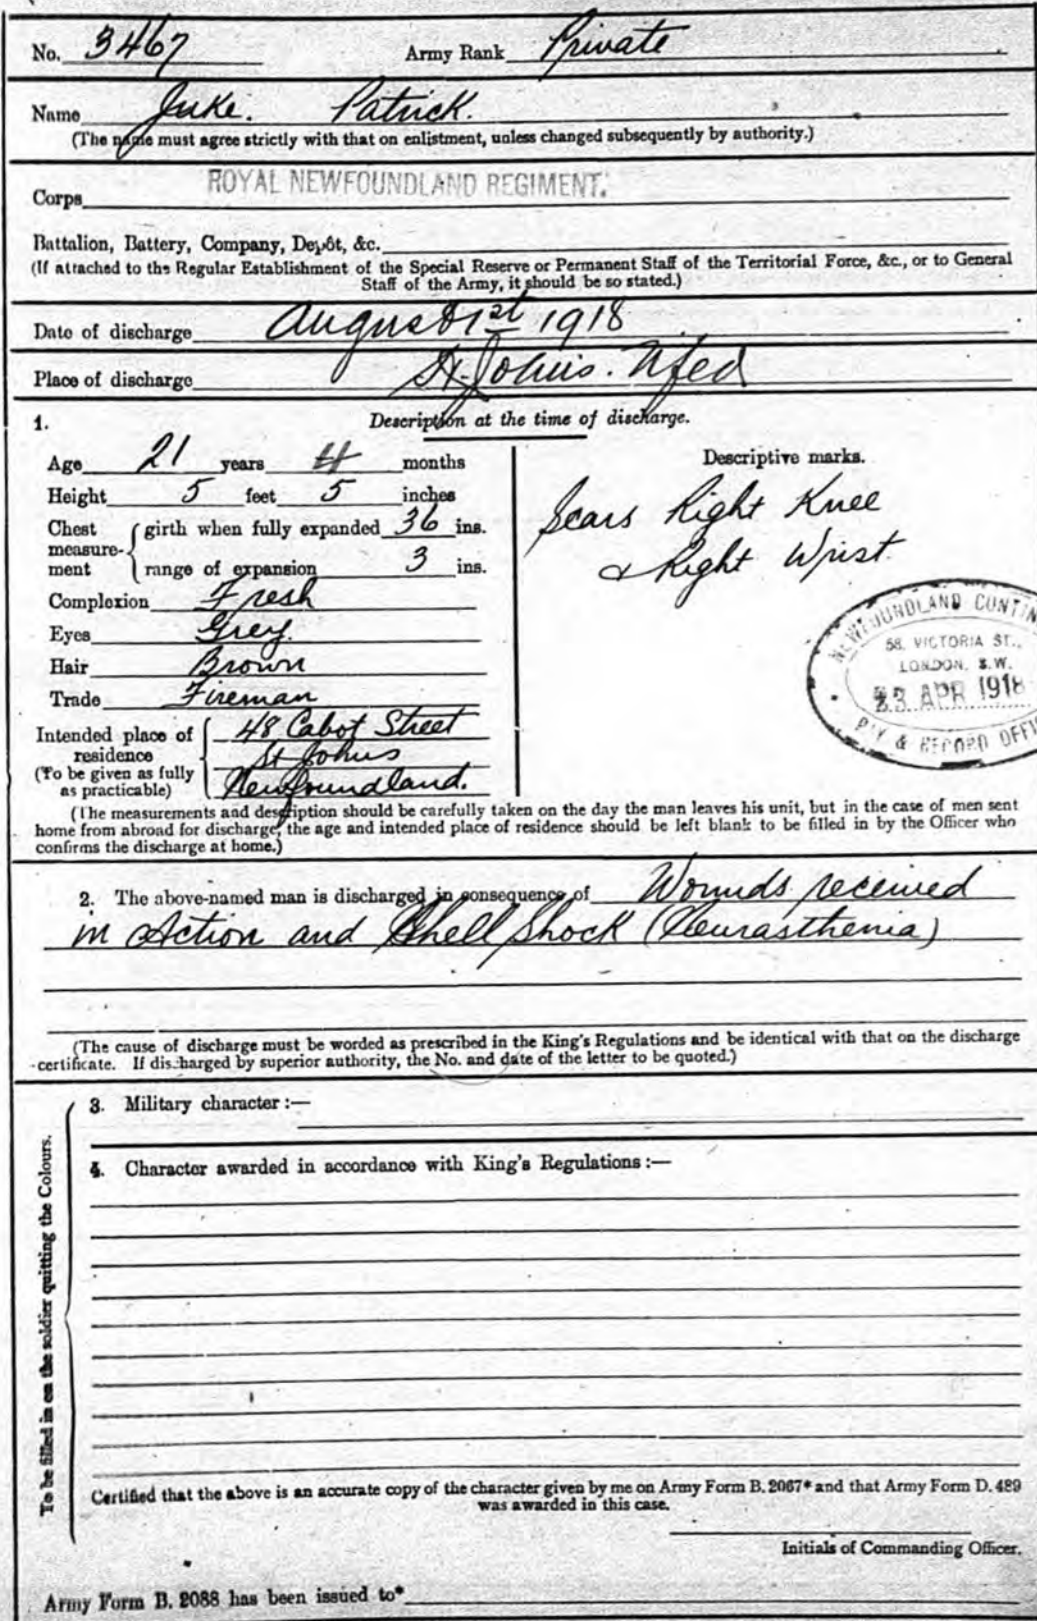 No. 3467 Army Rank Private
Name Juke. Patrick.
(The name must agree strictly with that on enlistment, unless changed subsequently by authority.)
Corps ROYAL NEWFOUNDLAND REGIMENT.
Battalion, Battery, Company, Depôt, &c.
(If attached to the Regular Establishment of the Special Reserve or Permanent Staff of the Territorial Force, &c., or to General
Staff of the Army, it should be so stated.)
Date of discharge August 1st 1918
Place of discharge St. John's. Nfld
1. Description at the time of discharge.
Age 21 years 4 months
Height 5 feet 5 inches
Chest measure-ment girth when fully expanded 36 ins.
range of expansion 3 ins.
Complexion Fresh
Eyes Grey.
Hair Brown
Trade Fireman
Intended place of residence 48 Cabot Street
(To be given as fully as practicable) St Johns
Newfoundland.
Descriptive marks.
Scars Right Knee
& Right Wrist.
NEWFOUNDLAND CONTIN
58, VICTORIA ST.,
LONDON, S.W.
23 APR 1918
PAY & RECORD OFFI
(The measurements and description should be carefully taken on the day the man leaves his unit, but in the case of men sent
home from abroad for discharge, the age and intended place of residence should be left blank to be filled in by the Officer who
confirms the discharge at home.)
2. The above-named man is discharged in consequence of Wounds received
in Action and Shell Shock (Neurasthenia)
(The cause of discharge must be worded as prescribed in the King's Regulations and be identical with that on the discharge
certificate. If discharged by superior authority, the No. and date of the letter to be quoted.)
To be filled in on the soldier quitting the Colours.
3. Military character :—
4. Character awarded in accordance with King's Regulations :—
Certified that the above is an accurate copy of the character given by me on Army Form B. 2067* and that Army Form D. 489
was awarded in this case.
Initials of Commanding Officer.
Army Form B. 2088 has been issued to*